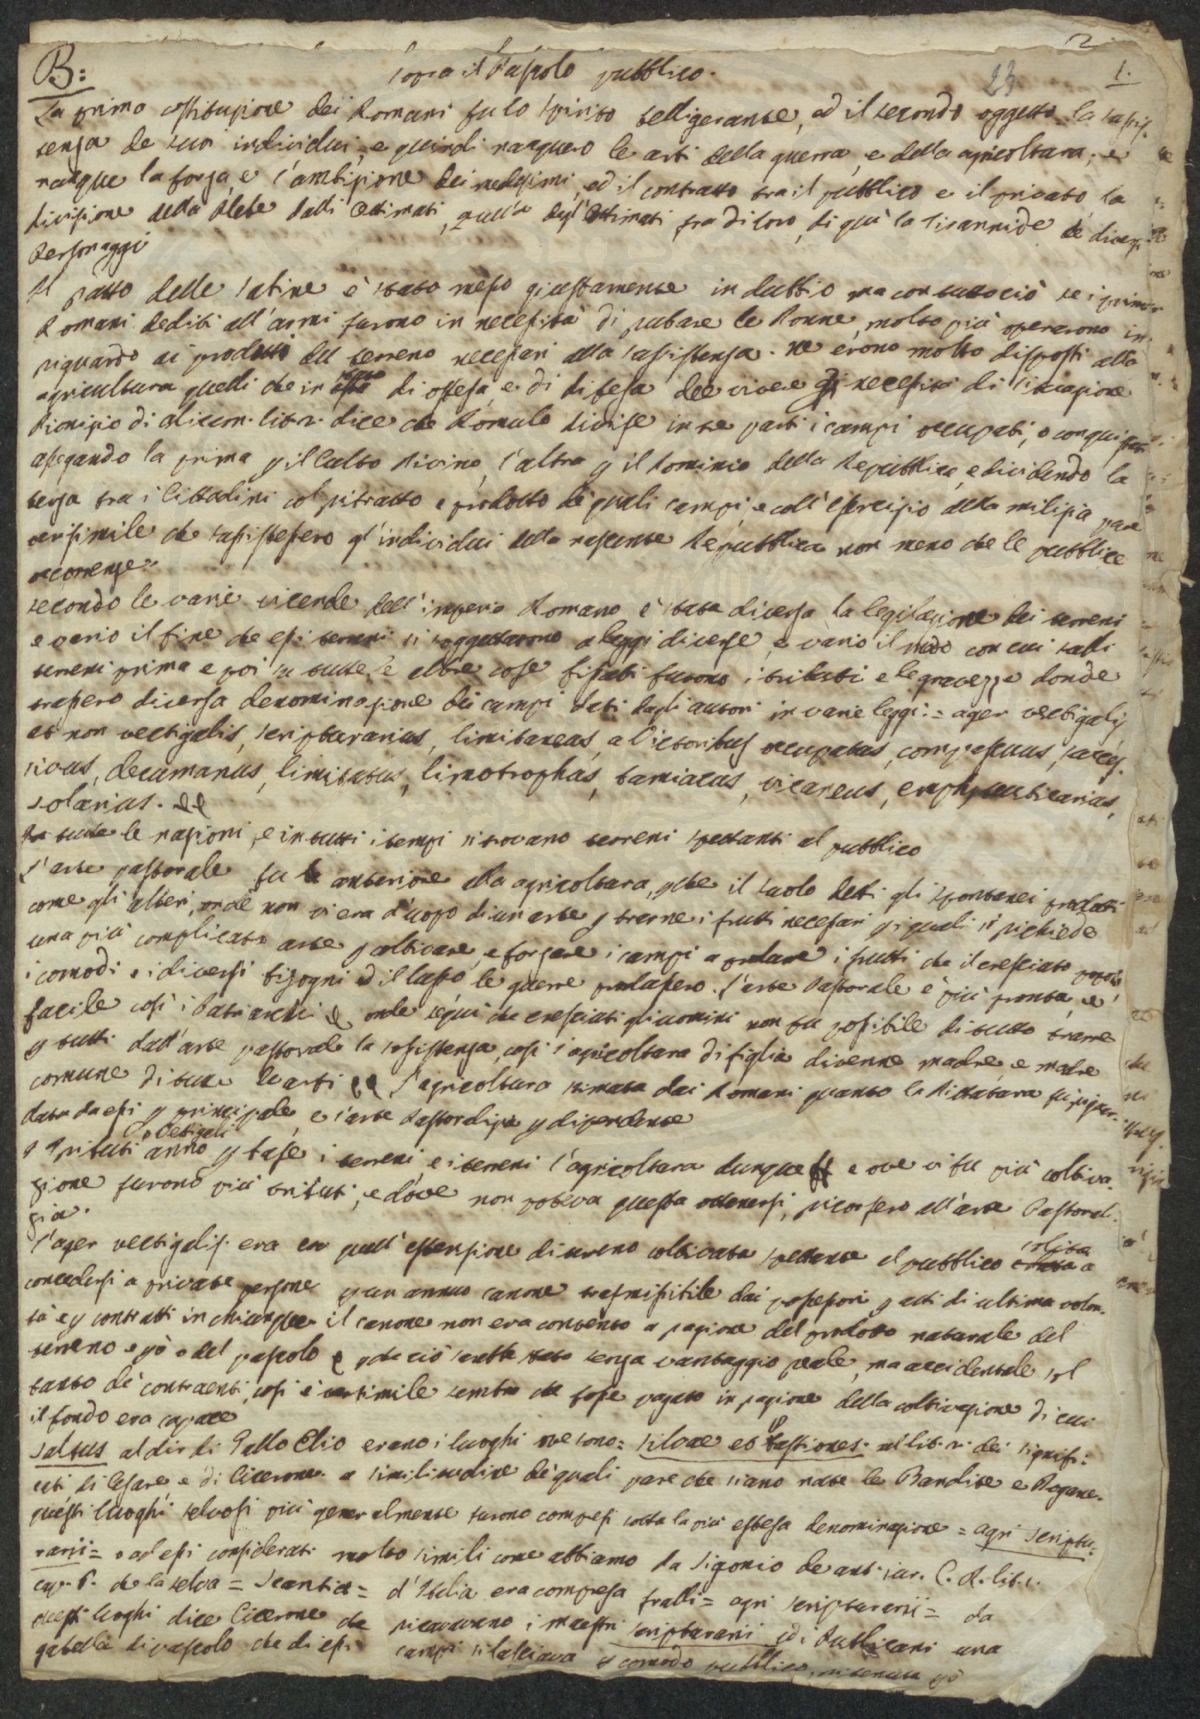 2
B:
Sopra il Pascolo pubblico.
23
1.
La prima costituzione dei Romani fu lo spirito belligerante, ed il secondo oggetto la sussis-
tenza de suoi individui, e quindi nacquero le arti della guerra, e della agricoltura; e
nacque la forza, e l'ambizione dei medesimi, ed il contratto tra il pubblico e il privato, la
divisione della Plebe dalli Ottimati, quella degl'Ottimati fra di loro, di quà la tirannide de diversi
Personaggi
Il ratto delle Sabine è stato messo giustamente in dubbio ma con tutto ciò se i primi
Romani dediti all'armi furono in necessità di rubare le Donne, molto più operarono in
riguardo ai prodotti del terreno necessari alla sussistenza. Ne erono molto disposti alla
agricultura quelli che in stato di offesa, e di difesa dee vivere necessità di situazione
Dionisio di Alicarn. lib. 2. dice che Romulo divise in tre parti i campi occupati, o conquistati
assegnando la prima p il Culto Divino, l'altra p il Dominio della Repubblica, e dividendo la
terza tra i Cittadini col ritratto e prodotto de quali campi, e coll'esercizio della milizia pare
verisimile che sussistessero gl'individui della nascente Repubblica non meno che le pubbliche
occorrenze.
Secondo le varie vicende dell'imperio Romano è stata diversa la legislazione dei terreni
e vario il fine che essi terreni si soggettarono a leggi diverse, e vario il modo con cui dalli
terreni prima e poi su tutte le altre cose fissati furono i tributi e le gravezze donde
trassero diversa denominazione dei campi dati dagli autori in varie leggi = ager vectigalis
et non vectigalis, scripturarius, limitaneus, a Victoribus occupatus, compascuus, succes-
sivus, decumanus, limitatus, limotrophus, tamiacus, vicareus, emphyteuticarius,
solarius. &c
tutte le nazioni, e in tutti i tempi si trovano terreni spettanti al pubblico
L'arte pastorale fu anteriore alla agricoltura, pche il suolo dette gli spontanei prodotti
come gli alberi, onde non vi era d'uopo di un arte p trarne i frutti necessari p i quali si richiede
una più complicata arte p coltivare, e forzare i campi a produrre i frutti che il cresciuto popolo
i comodi e i diversi bisogni ed il lusso, le guerre produssero. L'arte Pastorale è più pronta, e
facile così i Patriarchi &c onde seguì che cresciuti gli uomini non fu possibile di tutto trarre
p tutti dall'arte pastorale la sussistenza, così l'agricoltura di figlia divenne madre e madre
comune di tutte le arti &c L'agricoltura stimata dai Romani quanto la Dittatura fu riguar-
data da essi p principale, e l'arte Pastoralizia p dipendente
o Vettigali
I Tributi anno p base i terreni e i terreni l'agricoltura dunque e ove vi fu più coltiva-
zione furono più tributi, e dove non poteva questa ottenersi, ricorsero all'arte Pastorali-
zia.
L'ager vectigalis era quell'estensione di terreno coltivata spettante al pubblico solita a
concedersi a private persone p un annuo canone trasmissibile dai possessori p atti di ultima volon-
tà e p contratti in chiunque il canone non era convenuto a ragione del prodotto naturale del
terreno e pò o del pascolo pche ciò sarebbe stato senza vantaggio reale, ma accidentale sol
tanto de contraenti, così è verisimile sembra che fosse pagato in ragione della coltivazione di cui
il fondo era capace
Saltus al dir di Gallo Elio erano i luoghi ove sono = silvae et Pastiones. nel lib. 2. dei signifi-
cati di Cesare, e di Cicerone. a similitudine de quali pare che siano nate le Bandite e Dogane.
questi luoghi selvosi più generalmente furono compresi sotto la più estesa denominazione = agri scriptu-
rarii = o ad essi considerati molto simili come abbiamo da Sigonio de ant. iur. C. R. lib. 1.
cap. 6. che la selva = Scantia = d'Italia era compresa fralli = agri scripturarii = da
questi luoghi dice Cicerone che ricavavano i maestri scripturarii ed i Publicani una
gabella di pascolo che di essi campi si lasciava p comodo pubblico,